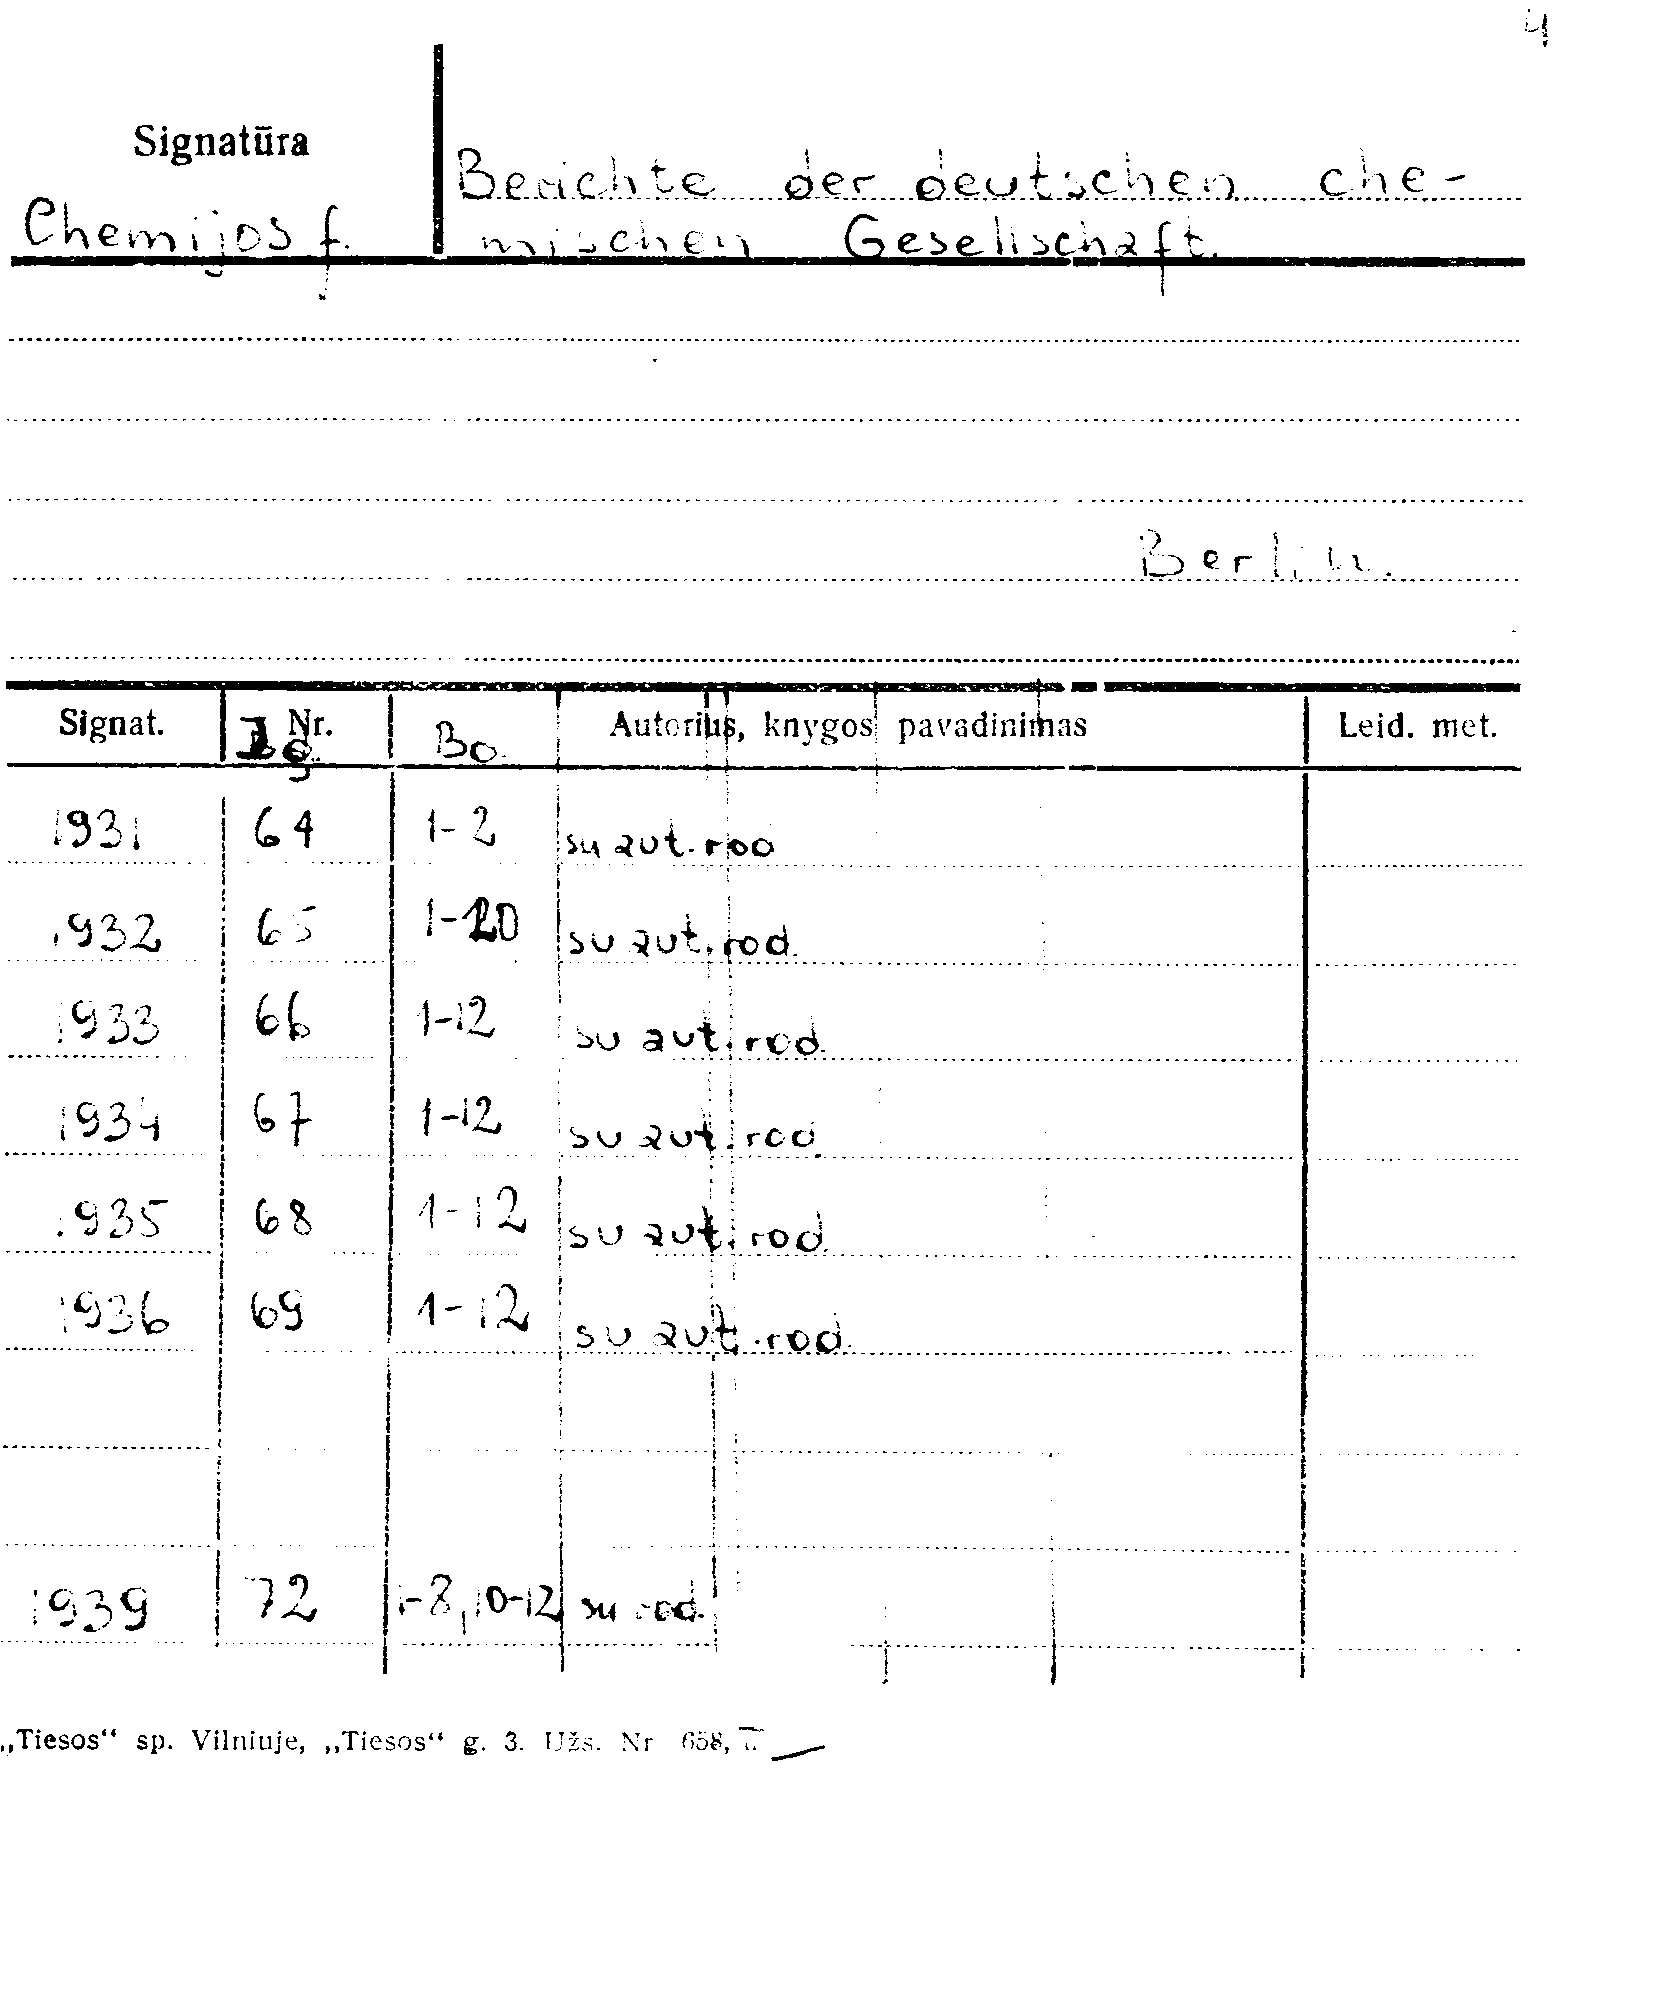 4
Signatūra
Chemijos f.
Berichte der deutschen che-
mischen Gesellschaft.
Berlin.
Signat. Nr. Bo. Autorius, knygos pavadinimas Leid. met.
1931 64 1-2 su aut. rod
1932 65 1-20 su aut. rod.
1933 66 1-12 su aut. rod.
1934 67 1-12 su aut. rod.
1935 68 1-12 su aut. rod.
1936 69 1-12 su aut. rod.
1939 72 1-8, 10-12 su rod.
„Tiesos“ sp. Vilniuje, „Tiesos“ g. 3. Užs. Nr 658,